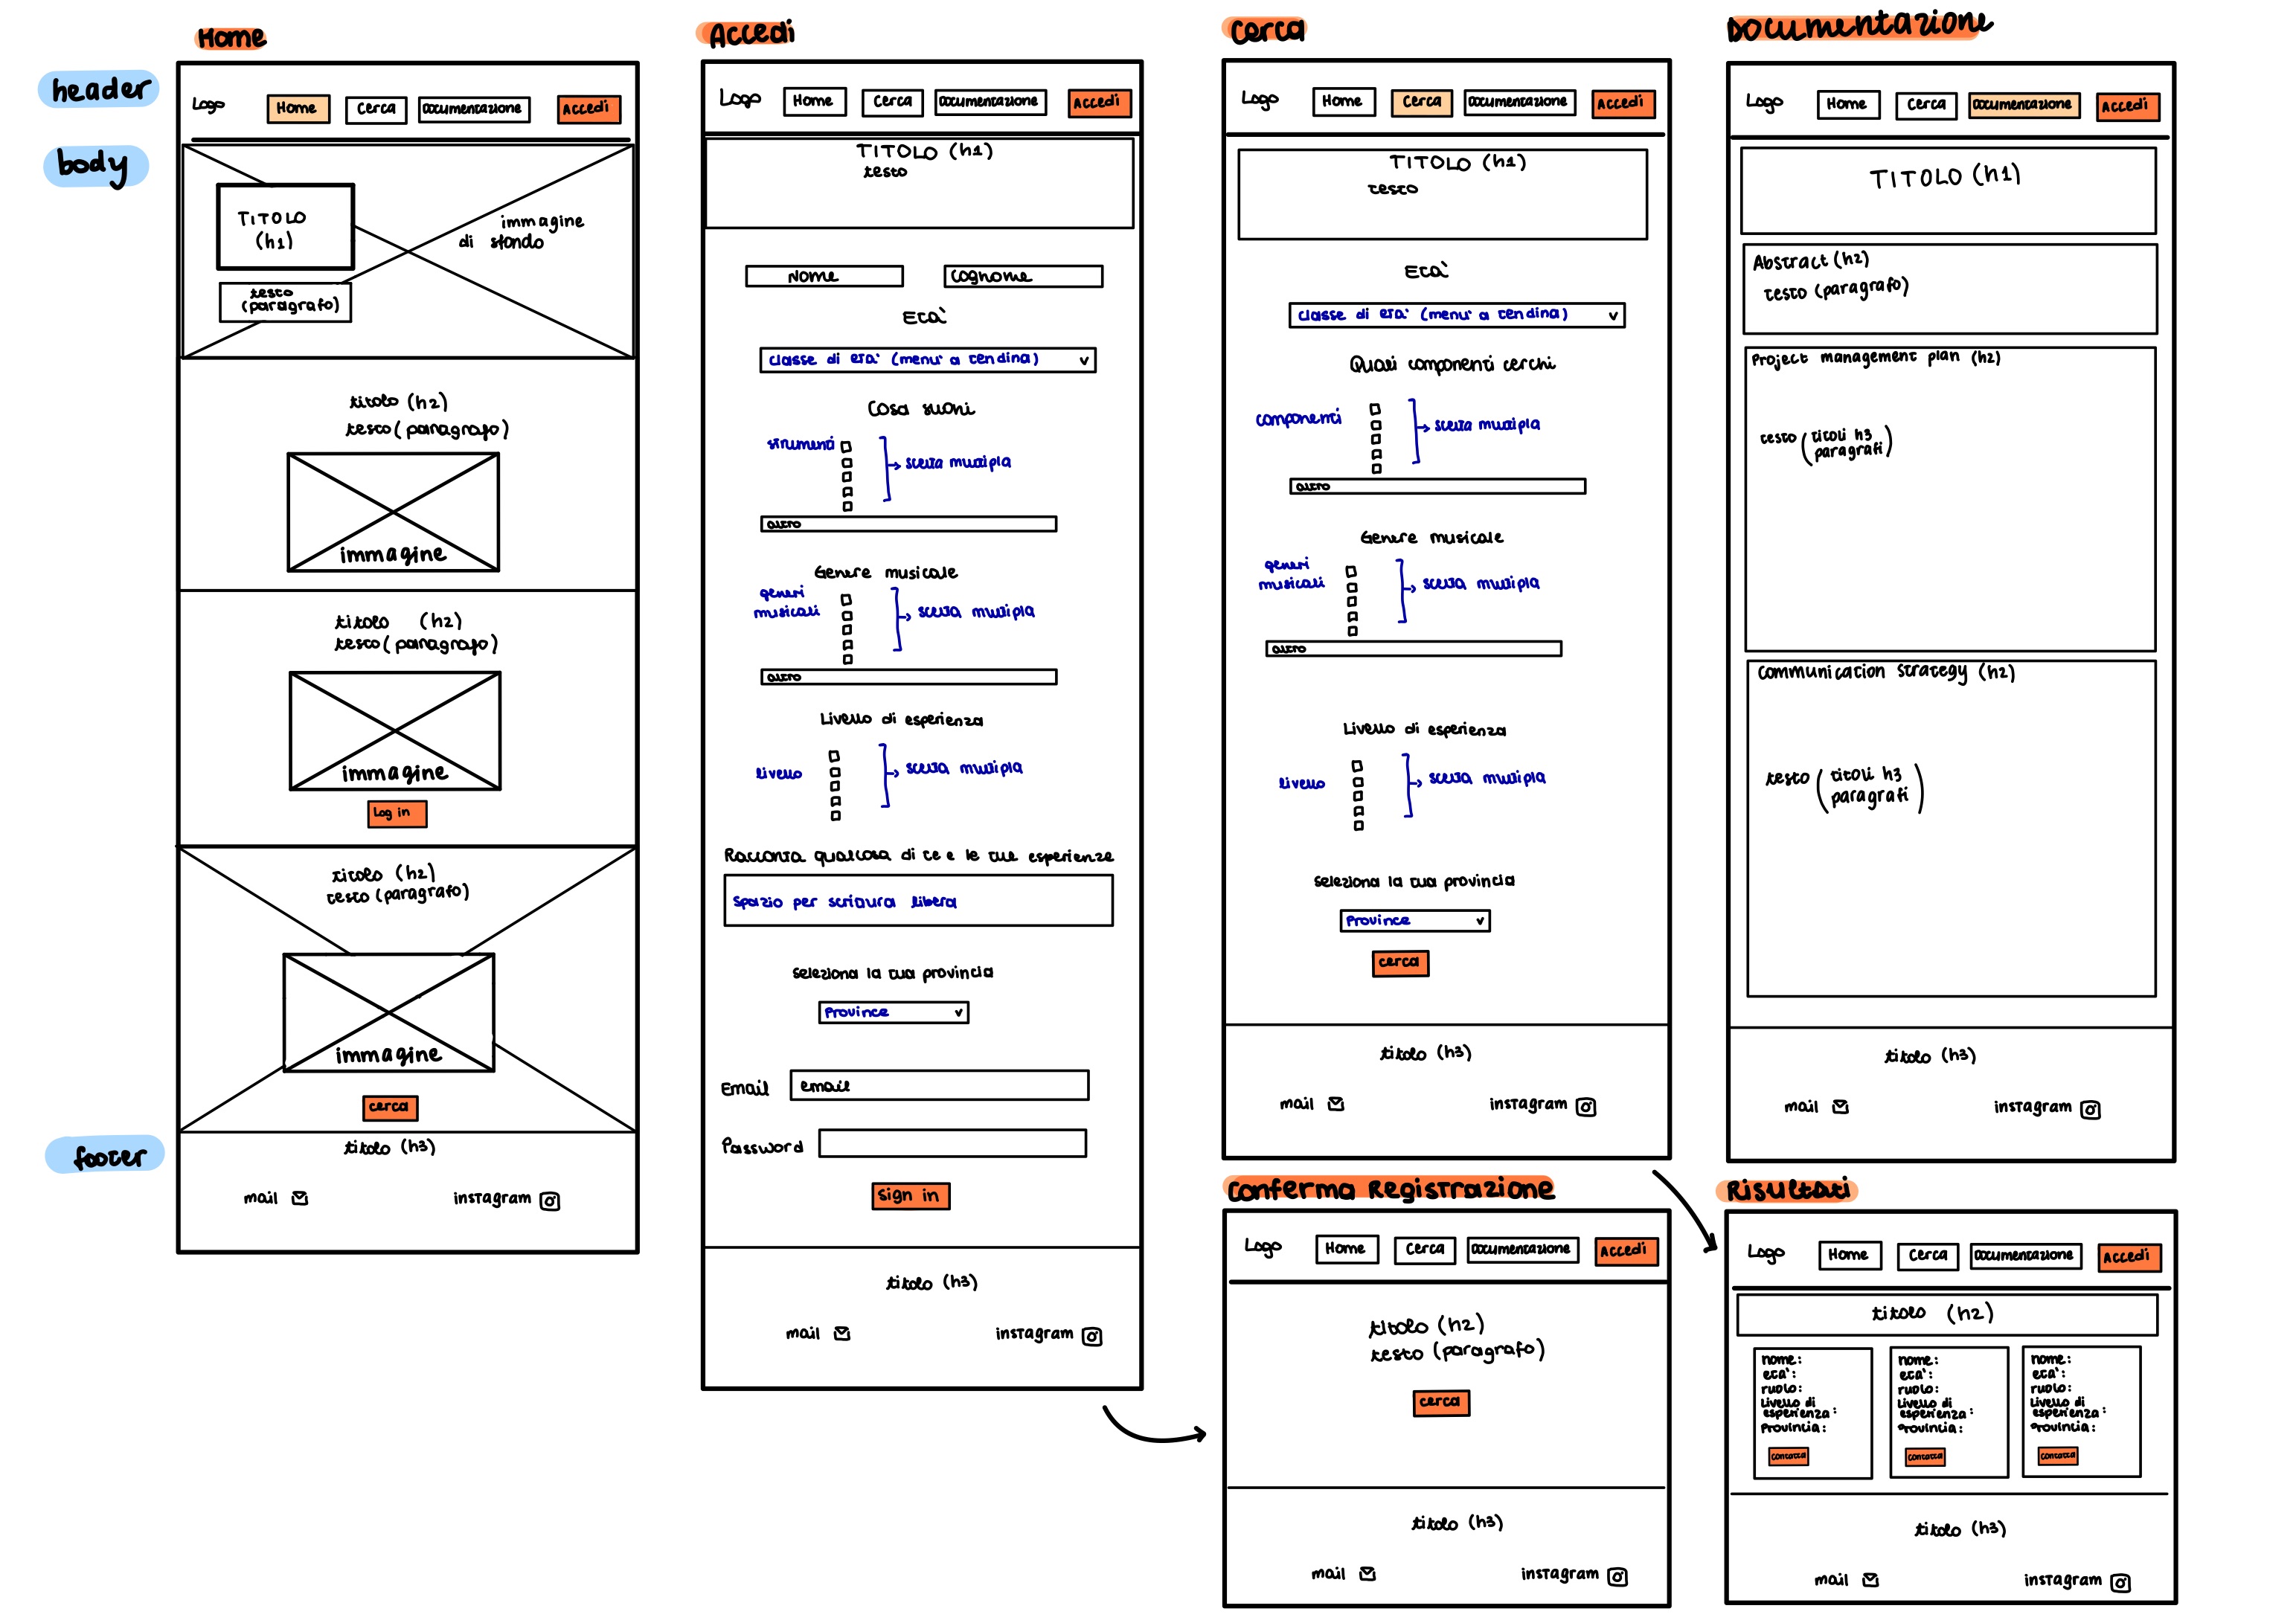 Home
header
Logo Home Cerca Documentazione Accedi
body
TITOLO
(h1)
immagine
di sfondo
testo
(paragrafo)
titolo (h2)
testo (paragrafo)
immagine
titolo (h2)
testo (paragrafo)
immagine
Log in
titolo (h2)
testo (paragrafo)
immagine
cerca
footer
titolo (h3)
mail instagram
Accedi
Logo Home Cerca Documentazione Accedi
TITOLO (h1)
testo
Nome Cognome
Età
Classe di età (menu' a tendina) v
Cosa suoni
strumenti
scelta multipla
altro
Genere musicale
generi
musicali
scelta multipla
altro
Livello di esperienza
livello
scelta multipla
Racconta qualcosa di te e le tue esperienze
Spazio per scrittura libera
Seleziona la tua provincia
Province v
Email email
Password
Sign in
titolo (h3)
mail instagram
Cerca
Logo Home Cerca Documentazione Accedi
TITOLO (h1)
testo
Età
Classe di età (menu' a tendina) v
Quali componenti cerchi
componenti
scelta multipla
altro
Genere musicale
generi
musicali
scelta multipla
altro
Livello di esperienza
livello
scelta multipla
Seleziona la tua provincia
Province v
cerca
titolo (h3)
mail instagram
Documentazione
Logo Home Cerca Documentazione Accedi
TITOLO (h1)
Abstract (h2)
testo (paragrafo)
Project management plan (h2)
testo (titoli h3
paragrafi)
Communication strategy (h2)
testo (titoli h3
paragrafi)
titolo (h3)
mail instagram
Conferma Registrazione
Logo Home Cerca Documentazione Accedi
titolo (h2)
testo (paragrafo)
cerca
titolo (h3)
mail instagram
Risultati
Logo Home Cerca Documentazione Accedi
titolo (h2)
nome:
età:
ruolo:
Livello di
esperienza:
Provincia:
contatta
nome:
età:
ruolo:
Livello di
esperienza:
Provincia:
contatta
nome:
età:
ruolo:
Livello di
esperienza:
Provincia:
contatta
titolo (h3)
mail instagram